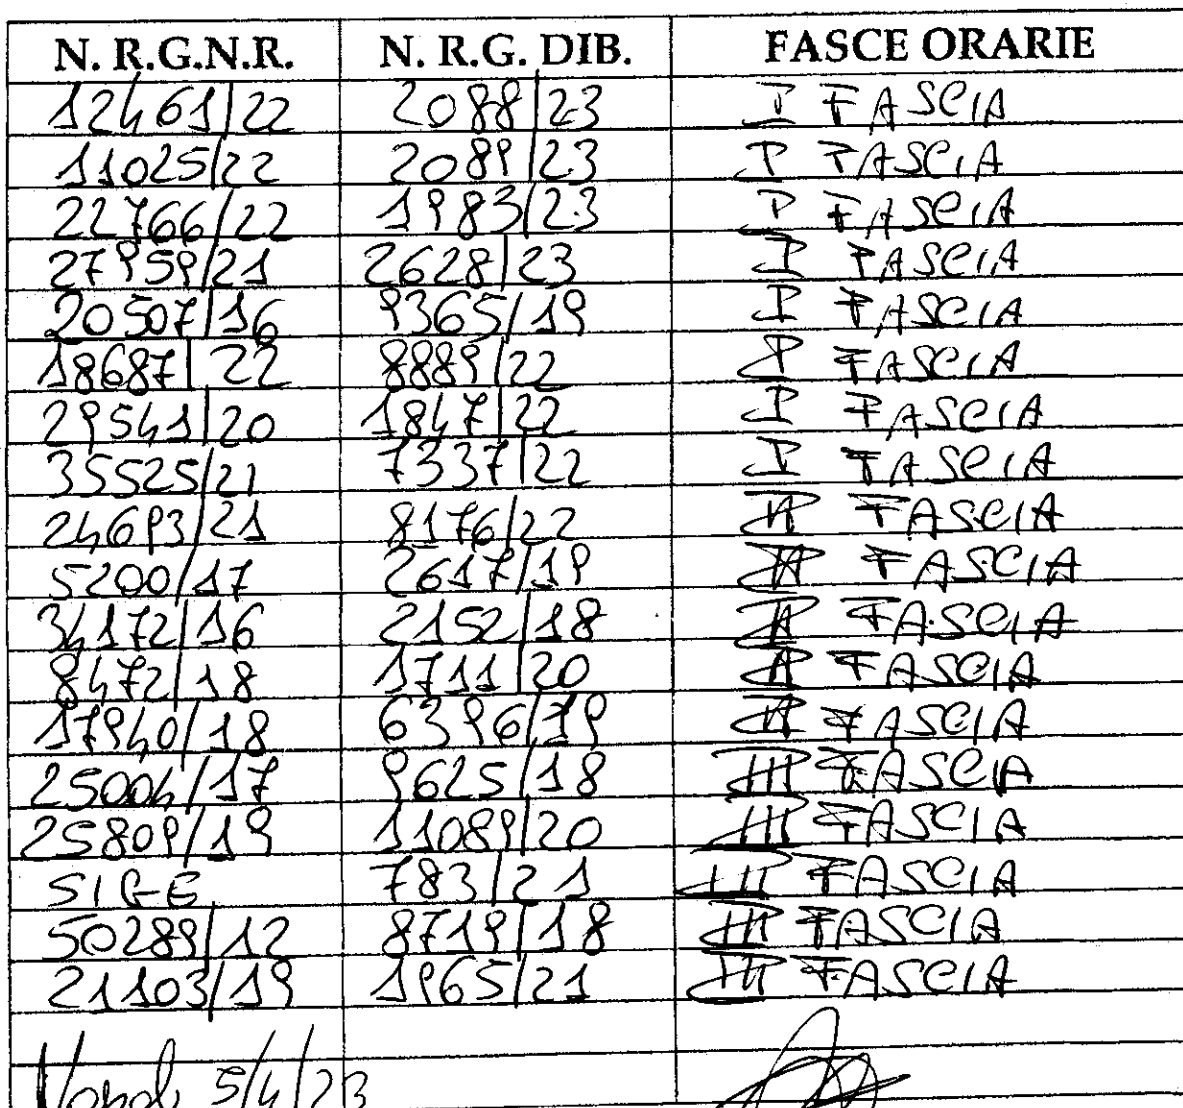 N. R.G.N.R. N. R.G. DIB. FASCE ORARIE
12461/22 2088/23 I FASCIA
11025/22 2089/23 I FASCIA
22766/22 1983/23 I FASCIA
27959/21 2628/23 I FASCIA
20507/16 9365/19 I FASCIA
18687/22 8889/22 I FASCIA
29541/20 1847/22 I FASCIA
35525/21 7337/22 I FASCIA
24693/21 8176/22 II FASCIA
5200/17 2617/19 II FASCIA
34172/16 2152/18 II FASCIA
8472/18 1711/20 II FASCIA
17940/18 6396/19 II FASCIA
25004/17 9625/18 III FASCIA
25809/19 11089/20 III FASCIA
SIGE 783/21 III FASCIA
50289/12 8719/18 III FASCIA
21103/19 1965/21 III FASCIA
5/4/23